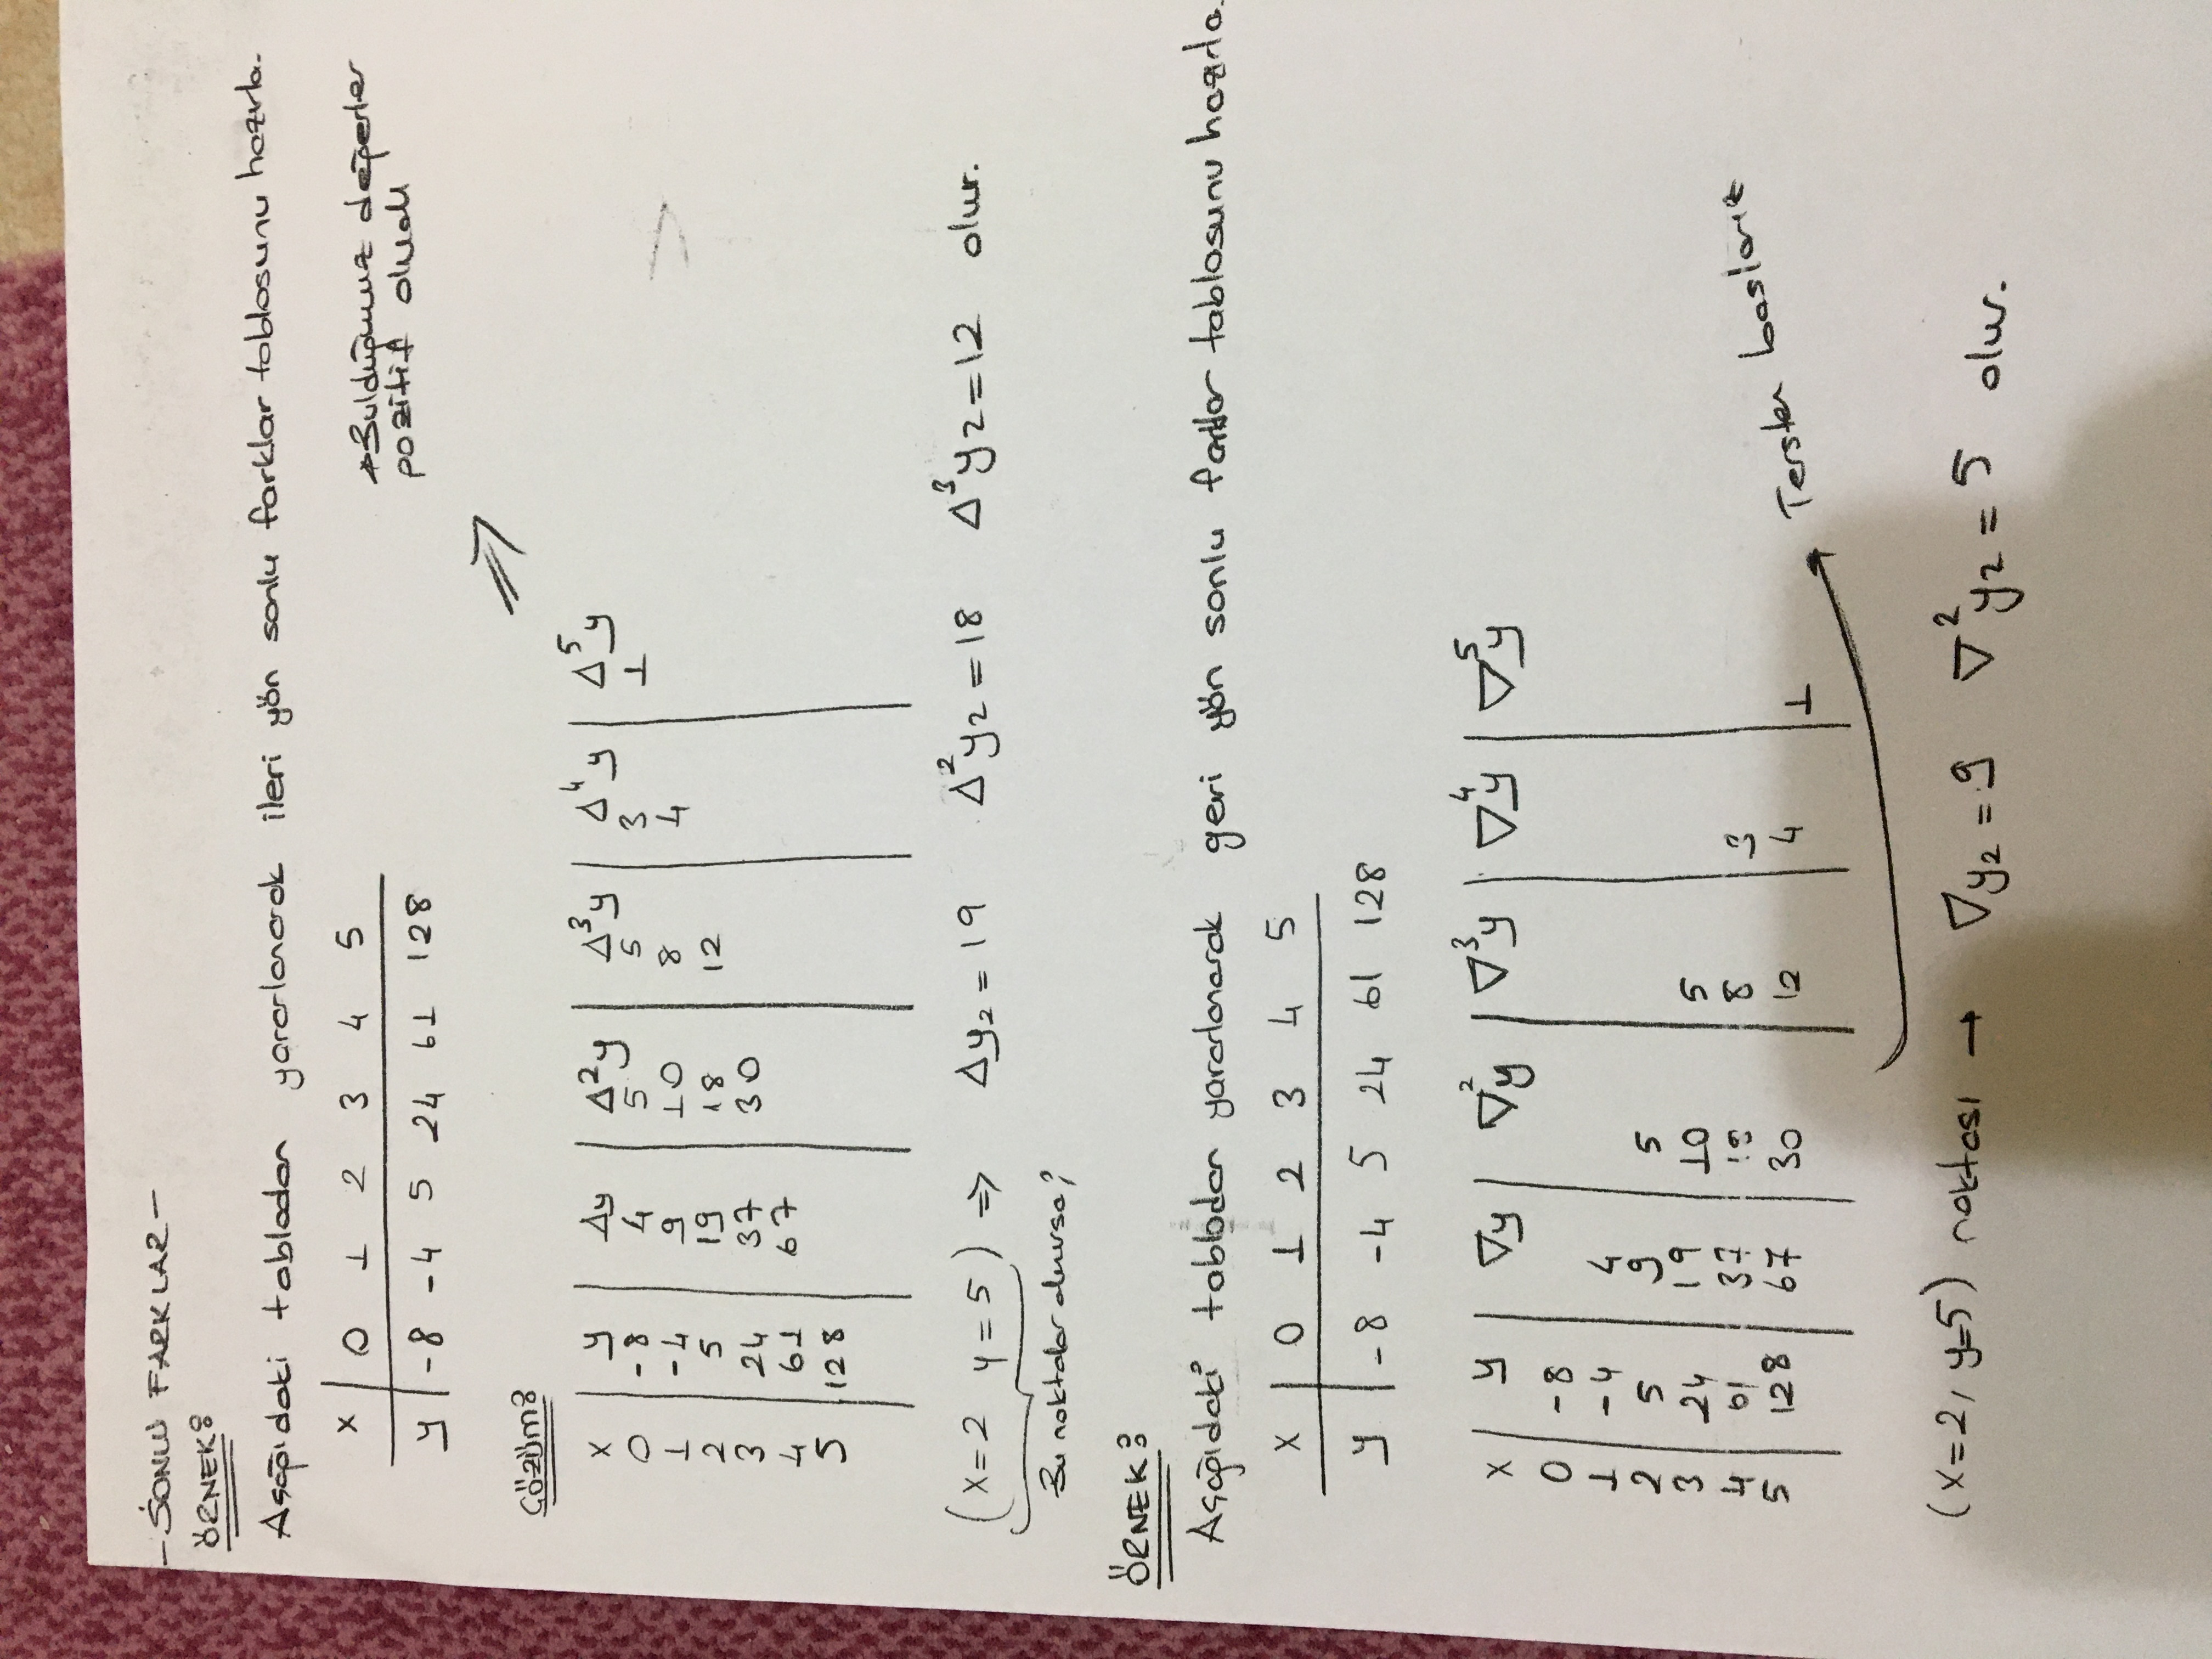 -SONLU FARKLAR-
ÖRNEK:
Aşağıdaki tablodan yararlanarak ileri yön sonlu farklar tablosunu hazırla.
x | 0 1 2 3 4 5
y | -8 -4 5 24 61 128
*Bulduğumuz değerler
pozitif olmalı
Çözüm:
x | y | Δy | Δ²y | Δ³y | Δ⁴y | Δ⁵y
0 | -8 | 4 | 5 | 5 | 3 | 1
1 | -4 | 9 | 10 | 8 | 4
2 | 5 | 19 | 18 | 12
3 | 24 | 37 | 30
4 | 61 | 67
5 | 128
(x=2 y=5) ⇒ Δy₂=19 Δ²y₂=18 Δ³y₂=12 olur.
Bu noktalar alınırsa;
ÖRNEK:
Aşağıdaki tablodan yararlanarak geri yön sonlu farklar tablosunu hazırla.
x | 0 1 2 3 4 5
y | -8 -4 5 24 61 128
x | y | ∇y | ∇²y | ∇³y | ∇⁴y | ∇⁵y
0 | -8
1 | -4 | 4
2 | 5 | 9 | 5
3 | 24 | 19 | 10 | 5
4 | 61 | 37 | 18 | 8 | 3
5 | 128 | 67 | 30 | 12 | 4 | 1
Tersten başlarız
(x=2, y=5) noktası → ∇y₂=9 ∇²y₂=5 olur.